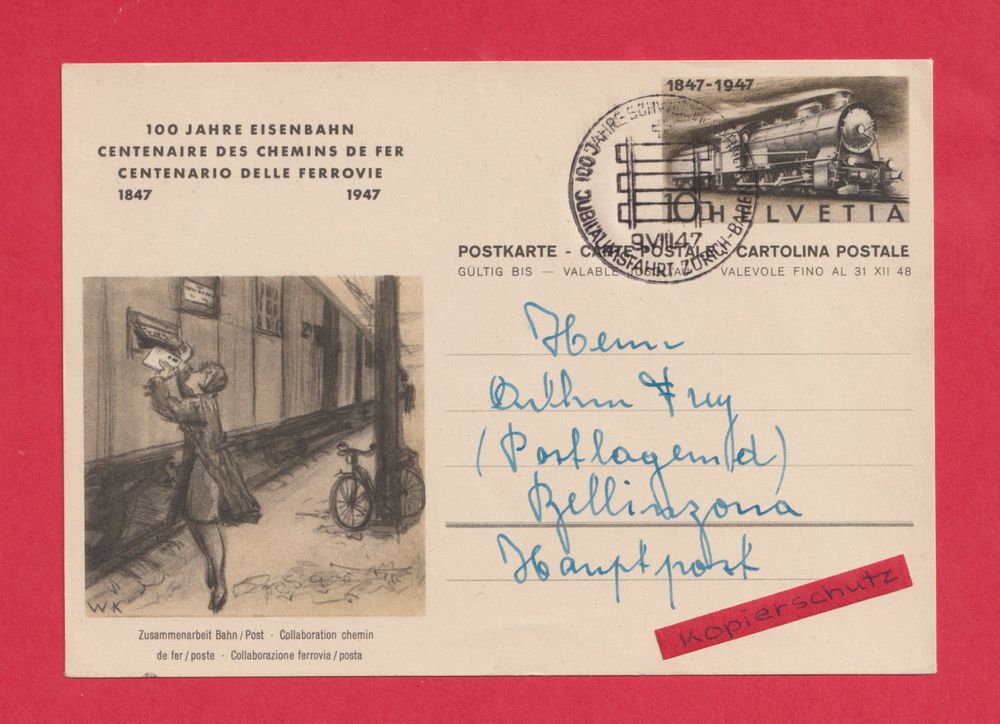 100 JAHRE EISENBAHN
CENTENAIRE DES CHEMINS DE FER
CENTENARIO DELLE FERROVIE
1847 1947
1847-1947
10 HELVETIA
100 JAHRE SCHWEIZ
9.VIII.47
JUBILÄUMSFAHRT ZÜRICH-BADEN
POSTKARTE - CARTE POSTALE - CARTOLINA POSTALE
GÜLTIG BIS — VALABLE — VALEVOLE FINO AL 31 XII 48
Herrn
Arthur Frey
(Postlagernd)
Bellinzona
Hauptpost
WK
Zusammenarbeit Bahn / Post · Collaboration chemin
de fer / poste · Collaborazione ferrovia / posta
Kopierschutz